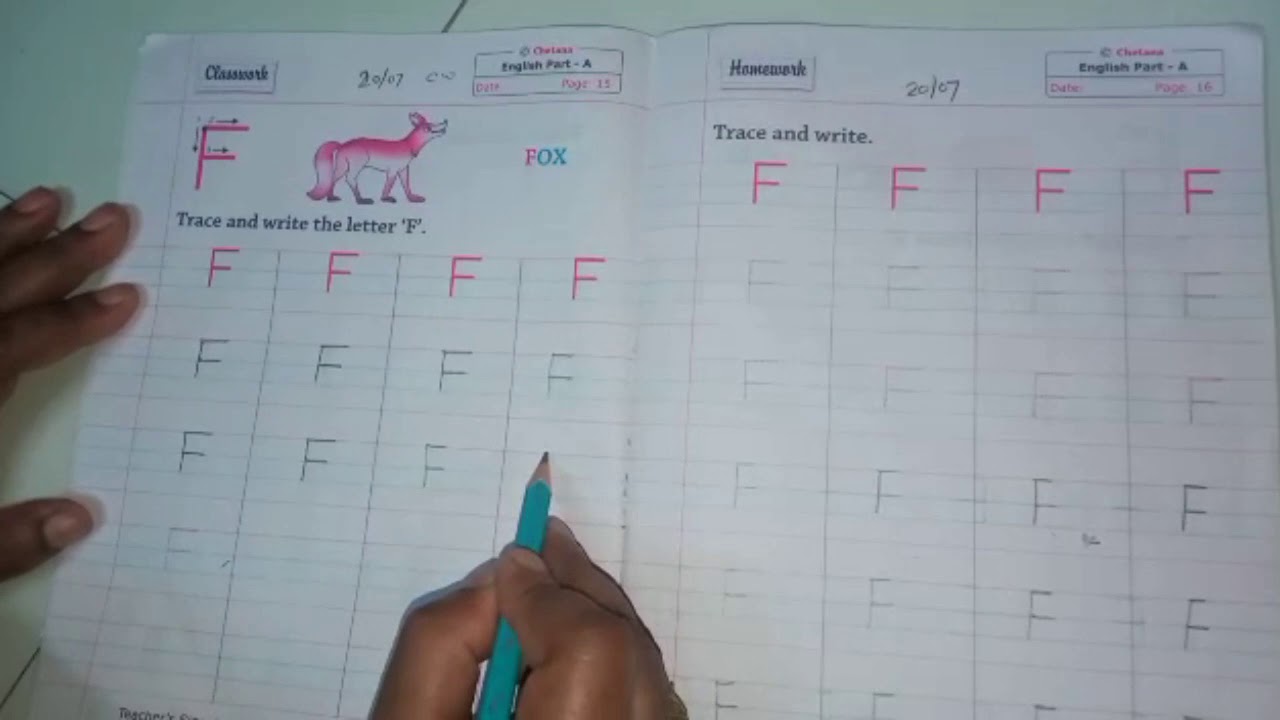 Classwork
20/07 CW
© Chetana
English Part - A
Date
Page: 15
F
FOX
Trace and write the letter ‘F’.
F F F F
F F F F
F F F
F
Homework
20/07
© Chetana
English Part - A
Date:
Page: 16
Trace and write.
F F F F
F F F F
F F F F
F F F F
F F F F
F F